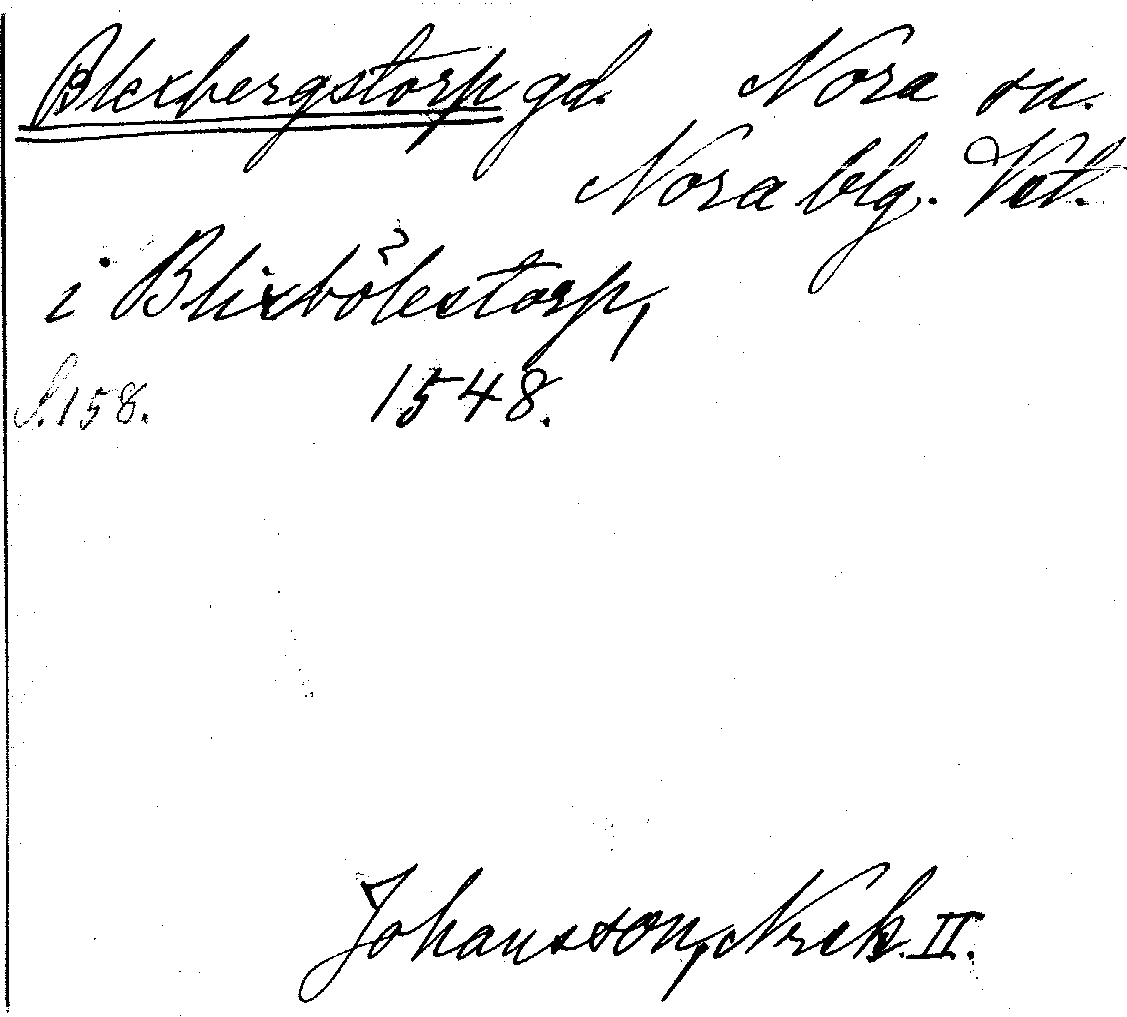 Blexbergstorp gd. Nora sn.
Nora blg. Vstl.
i Blixbölestorp,
?
S. 158. 1548.
Johansson, Nrck. II.